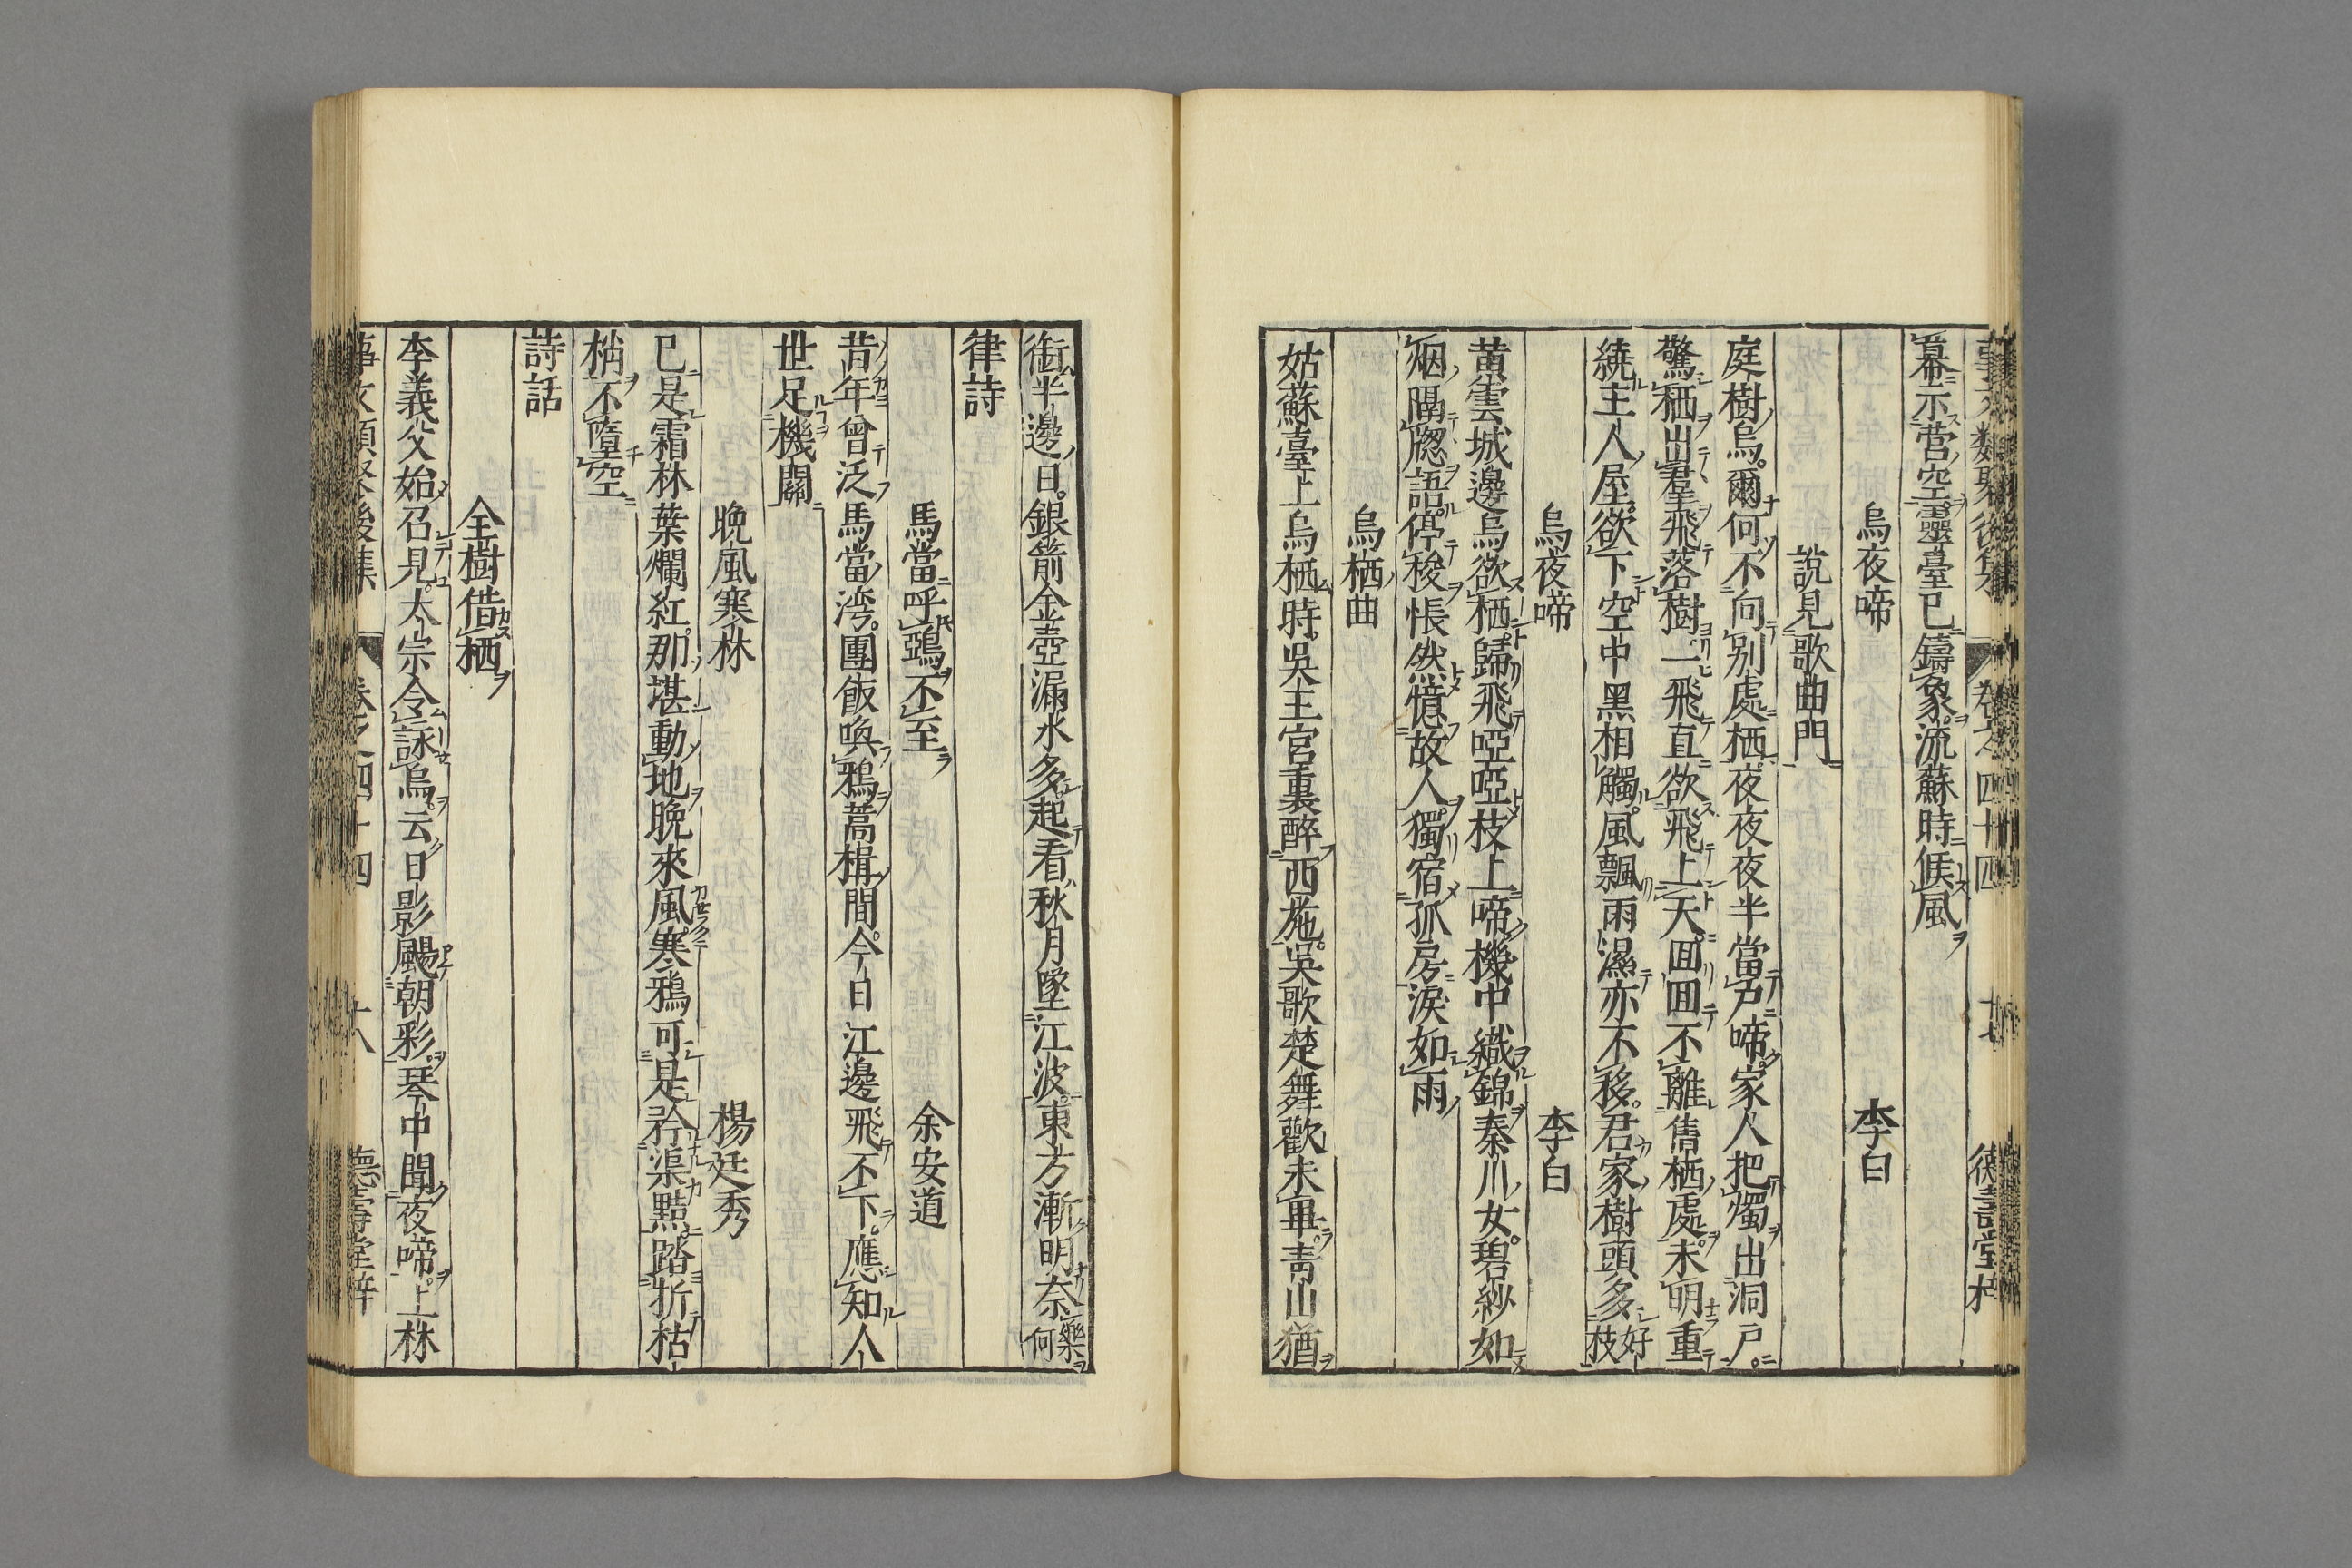 事文類聚後集 卷之四十四 十七 德壽堂梓
幕示営空靈臺已鑄象流蘇時候風
烏夜啼 李白
說見歌曲門
庭樹烏爾何不向別處栖夜夜夜半當戶啼家人把燭出洞戶
驚栖出羣飛落樹一飛直欲飛上天囬囬不離舊栖處未明重
繞主人屋欲下空中黑相觸風飄雨濕亦不移君家樹頭多好枝
烏夜啼 李白
黄雲城邊烏欲栖歸飛啞啞枝上啼機中織錦秦川女碧紗如
烟隔牎語停梭悵然憶故人獨宿孤房淚如雨
烏栖曲
姑蘇臺上烏栖時吳王宮裏醉西施吳歌楚舞歡未畢靑山猶
銜半邊日銀箭金壺漏水多起看秋月墜江波東方漸明奈樂何
律詩
馬當呼鵶不至 余安道
昔年曾泛馬當湾團飯喚鴉蒿楫間今日江邊飛不下應知人
世足機關
晩風寒林 楊廷秀
已是霜林葉爛紅那堪動地晩來風寒鴉可是矜渠黠踏折枯
梢不墮空
詩話
全樹借栖
李義父始召見太宗令詠烏云日影颺朝彩琴中聞夜啼上林
事文類聚後集 卷之四十四 十八 德壽堂梓